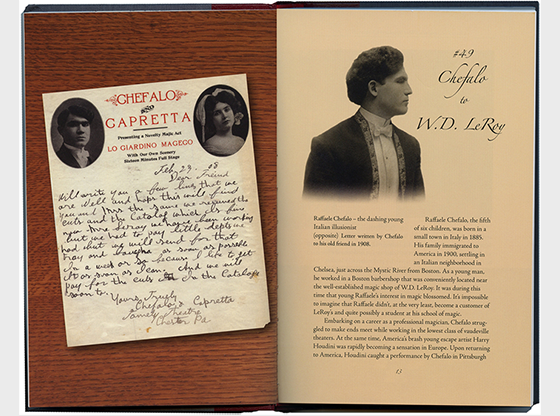 CHEFALO
AND
CAPRETTA
Presenting a Novelty Magic Act
LO GIARDINO MAGEGO
With Our Own Scenery
Sixteen Minutes Full Stage
Feb 29. 08
Dear Friend
Will write you a few lines that we
are well and hope this will find
you and Mrs the same we received the
cuts and the Catalog which its fine
now Mr. Leroy we have been working
but we had to pay little depts we
had but we will send for that
tray and as soon as possible
in a week or so because I like to get
it as soon as I can. And we will
pay for the cuts in the Catalogs
soon to.
Yours Truly
Chefalo & Capretta
Family Theatre
Chester Pa.
#49
Chefalo
to
W.D. LeRoy
Raffaele Chefalo – the dashing young
Italian illusionist
(opposite) Letter written by Chefalo
to his old friend in 1908.
Raffaele Chefalo, the fifth
of six children, was born in a
small town in Italy in 1885.
His family immigrated to
America in 1900, settling in
an Italian neighborhood in
Chelsea, just across the Mystic River from Boston. As a young man,
he worked in a Boston barbershop that was conveniently located near
the well-established magic shop of W.D. LeRoy. It was during this
time that young Raffaele's interest in magic blossomed. It's impossible
to imagine that Raffaele didn't, at the very least, become a customer of
LeRoy's and quite possibly a student at his school of magic.
Embarking on a career as a professional magician, Chefalo strug-
gled to make ends meet while working in the lowest class of vaudeville
theaters. At the same time, America's brash young escape artist Harry
Houdini was rapidly becoming a sensation in Europe. Upon returning
to America, Houdini caught a performance by Chefalo in Pittsburgh
15